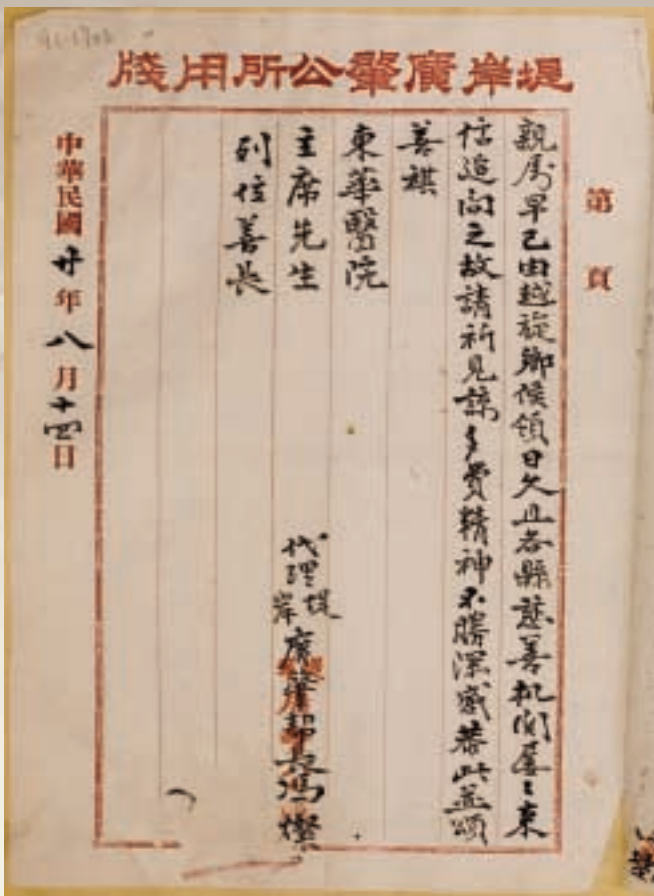 堤岸廣肇公所用牋
第 頁
親屬早已由越旋鄉候領日久且各縣慈善机関屢々來
信追问之故請祈見諒多費精神不勝深感耑此並頌
善祺
東華醫院
主席先生
列位善長
代理堤岸廣肇帮長馮燦
中華民國廿年八月十四日